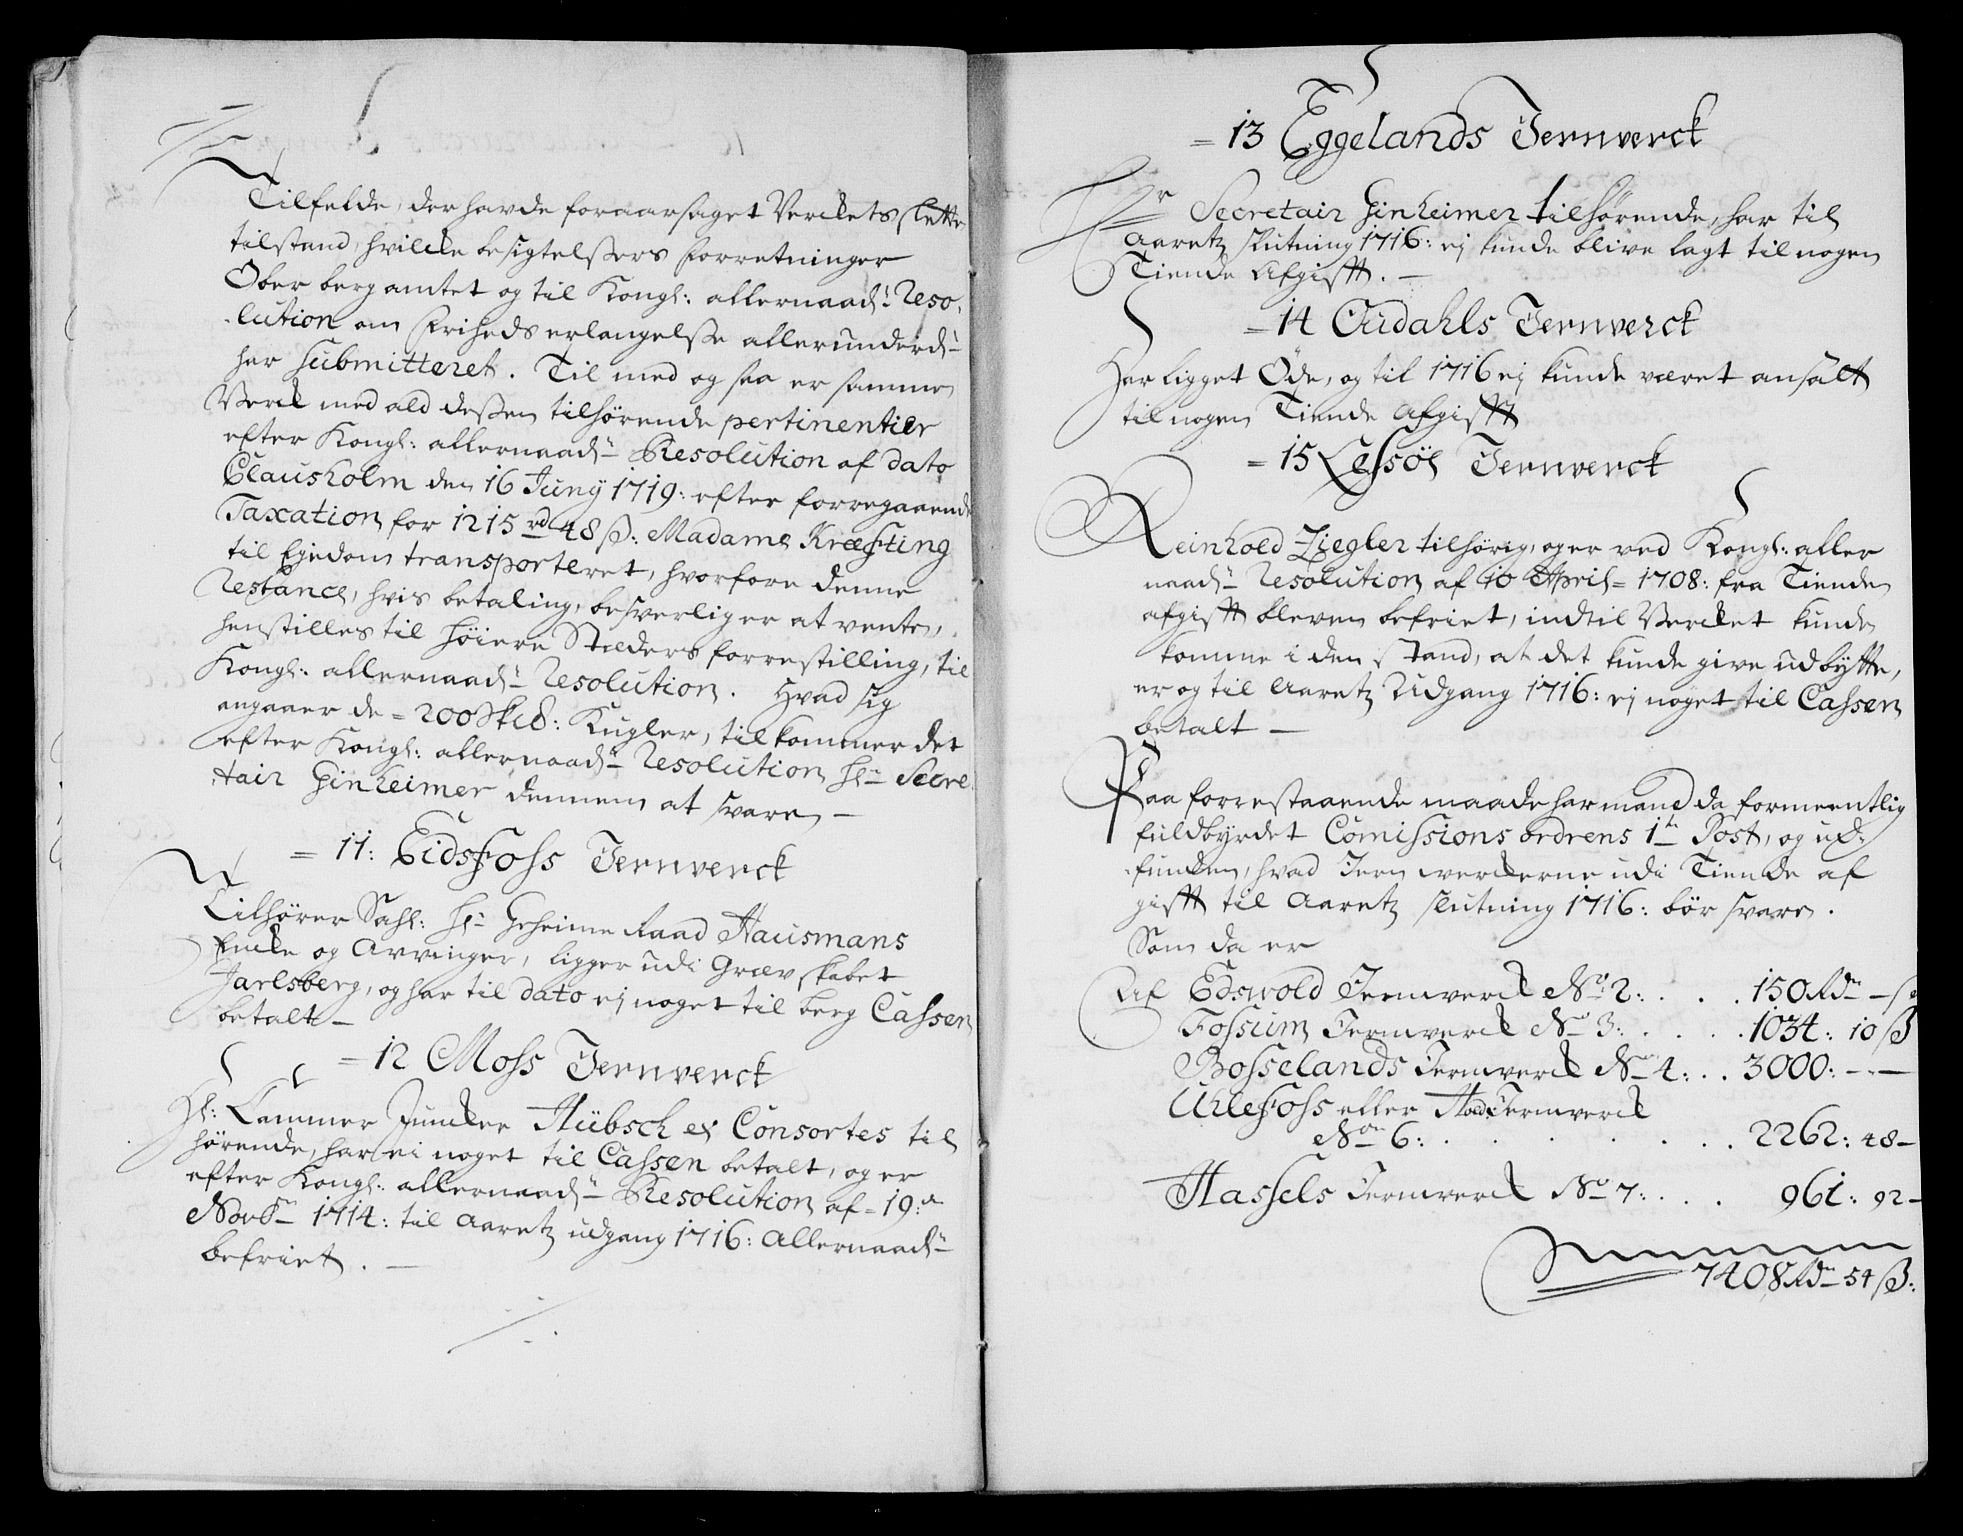 Tilfelde, der havde foraarsaget Verckets slette
tilstand, hvilcke besigtelsers forretninger
Ober berg amtet og til Kongl: allernaad: Reso-
lution om friheds erlangelse allerunderd:
har submitteret. Til med og saa er samme
Verck med ald dessen tilhørende pertinentier
efter Kongl: allernaad: Resolution af dato
Clausholm den 16 Juny 1719: efter forregaaende
Taxation for 1215 rd 48 ß: Madame Kræfting
til Ejedom transporteret, hvorfore denne
Restance, hvis betaling, besverlig er at vente,
henstilles til høiere Stæders forrestilling, til
Kongl: allernaad: Resolution. Hvad sig
angaaer de = 200 Skld: Kugler, tilkommer det
efter Kongl: allernaad: Resolution Hr Secre-
tair Ginheimer dennem at svare —
= 11: Eidsfoss Jernverck
Tilhører Sahl: Hr Geheime Raad Hausmans
Encke og Arvinger, ligger udi Grævskabet
Jarlsberg, og har til dato ej noget til berg Cassen
betalt —
= 12 Moss Jernverck
Hr: Cammer Juncker Hübsch et Consortes til
hørende, har ei noget til Cassen betalt, og er
efter Kongl: allernaad: Resolution af = 19:
Novbr 1714: til Aaretz udgang 1716: Allernaad:
befriet. —
= 13 Eggelands Jernverck
Hr Secretair Ginheimer tilhørende, har til
Aaretz slutning 1716: ej kunde blive lagt til nogen
Tiende Afgifft. —
= 14 Oudahls Jernverck
Har ligget Øde, og til 1716 ej kunde været ansalt
til nogen Tiende Afgifft
= 15 Lessøe Jernverck
Reinhold Ziegler tilhørig, og er ved Kongl: aller
naad: Resolution af 10 April = 1708: fra Tiende
afgifft bleven befriet, indtil Vercket kunde
komme i den stand, at det kunde give udbytte,
er og til Aaretz Udgang 1716: ej noget til Cassen
betalt —
Paa forrestaaende maade har mand da formeentlig
fuldbyrdet Comissions ordrens 1te Post, og ud-
funden, hvad Jern werckerne udi Tiende af
gifft til Aaretz slutning 1716: bør svare.
Som da er
Af Edswold Jernverck No 2: . . . . 150 Rdr — ß
Fossum Jernverck No 3: . . . . . 1034: 10 ß
Bosselands Jernverck No 4: . . 3000: - - —
Uhlefoss eller Holds Jernverck
No 6: . . . . . . . 2262: 48 —
Hassels Jernverck No 7: . . . 961: 92 —
7408 Rdr 54 ß: